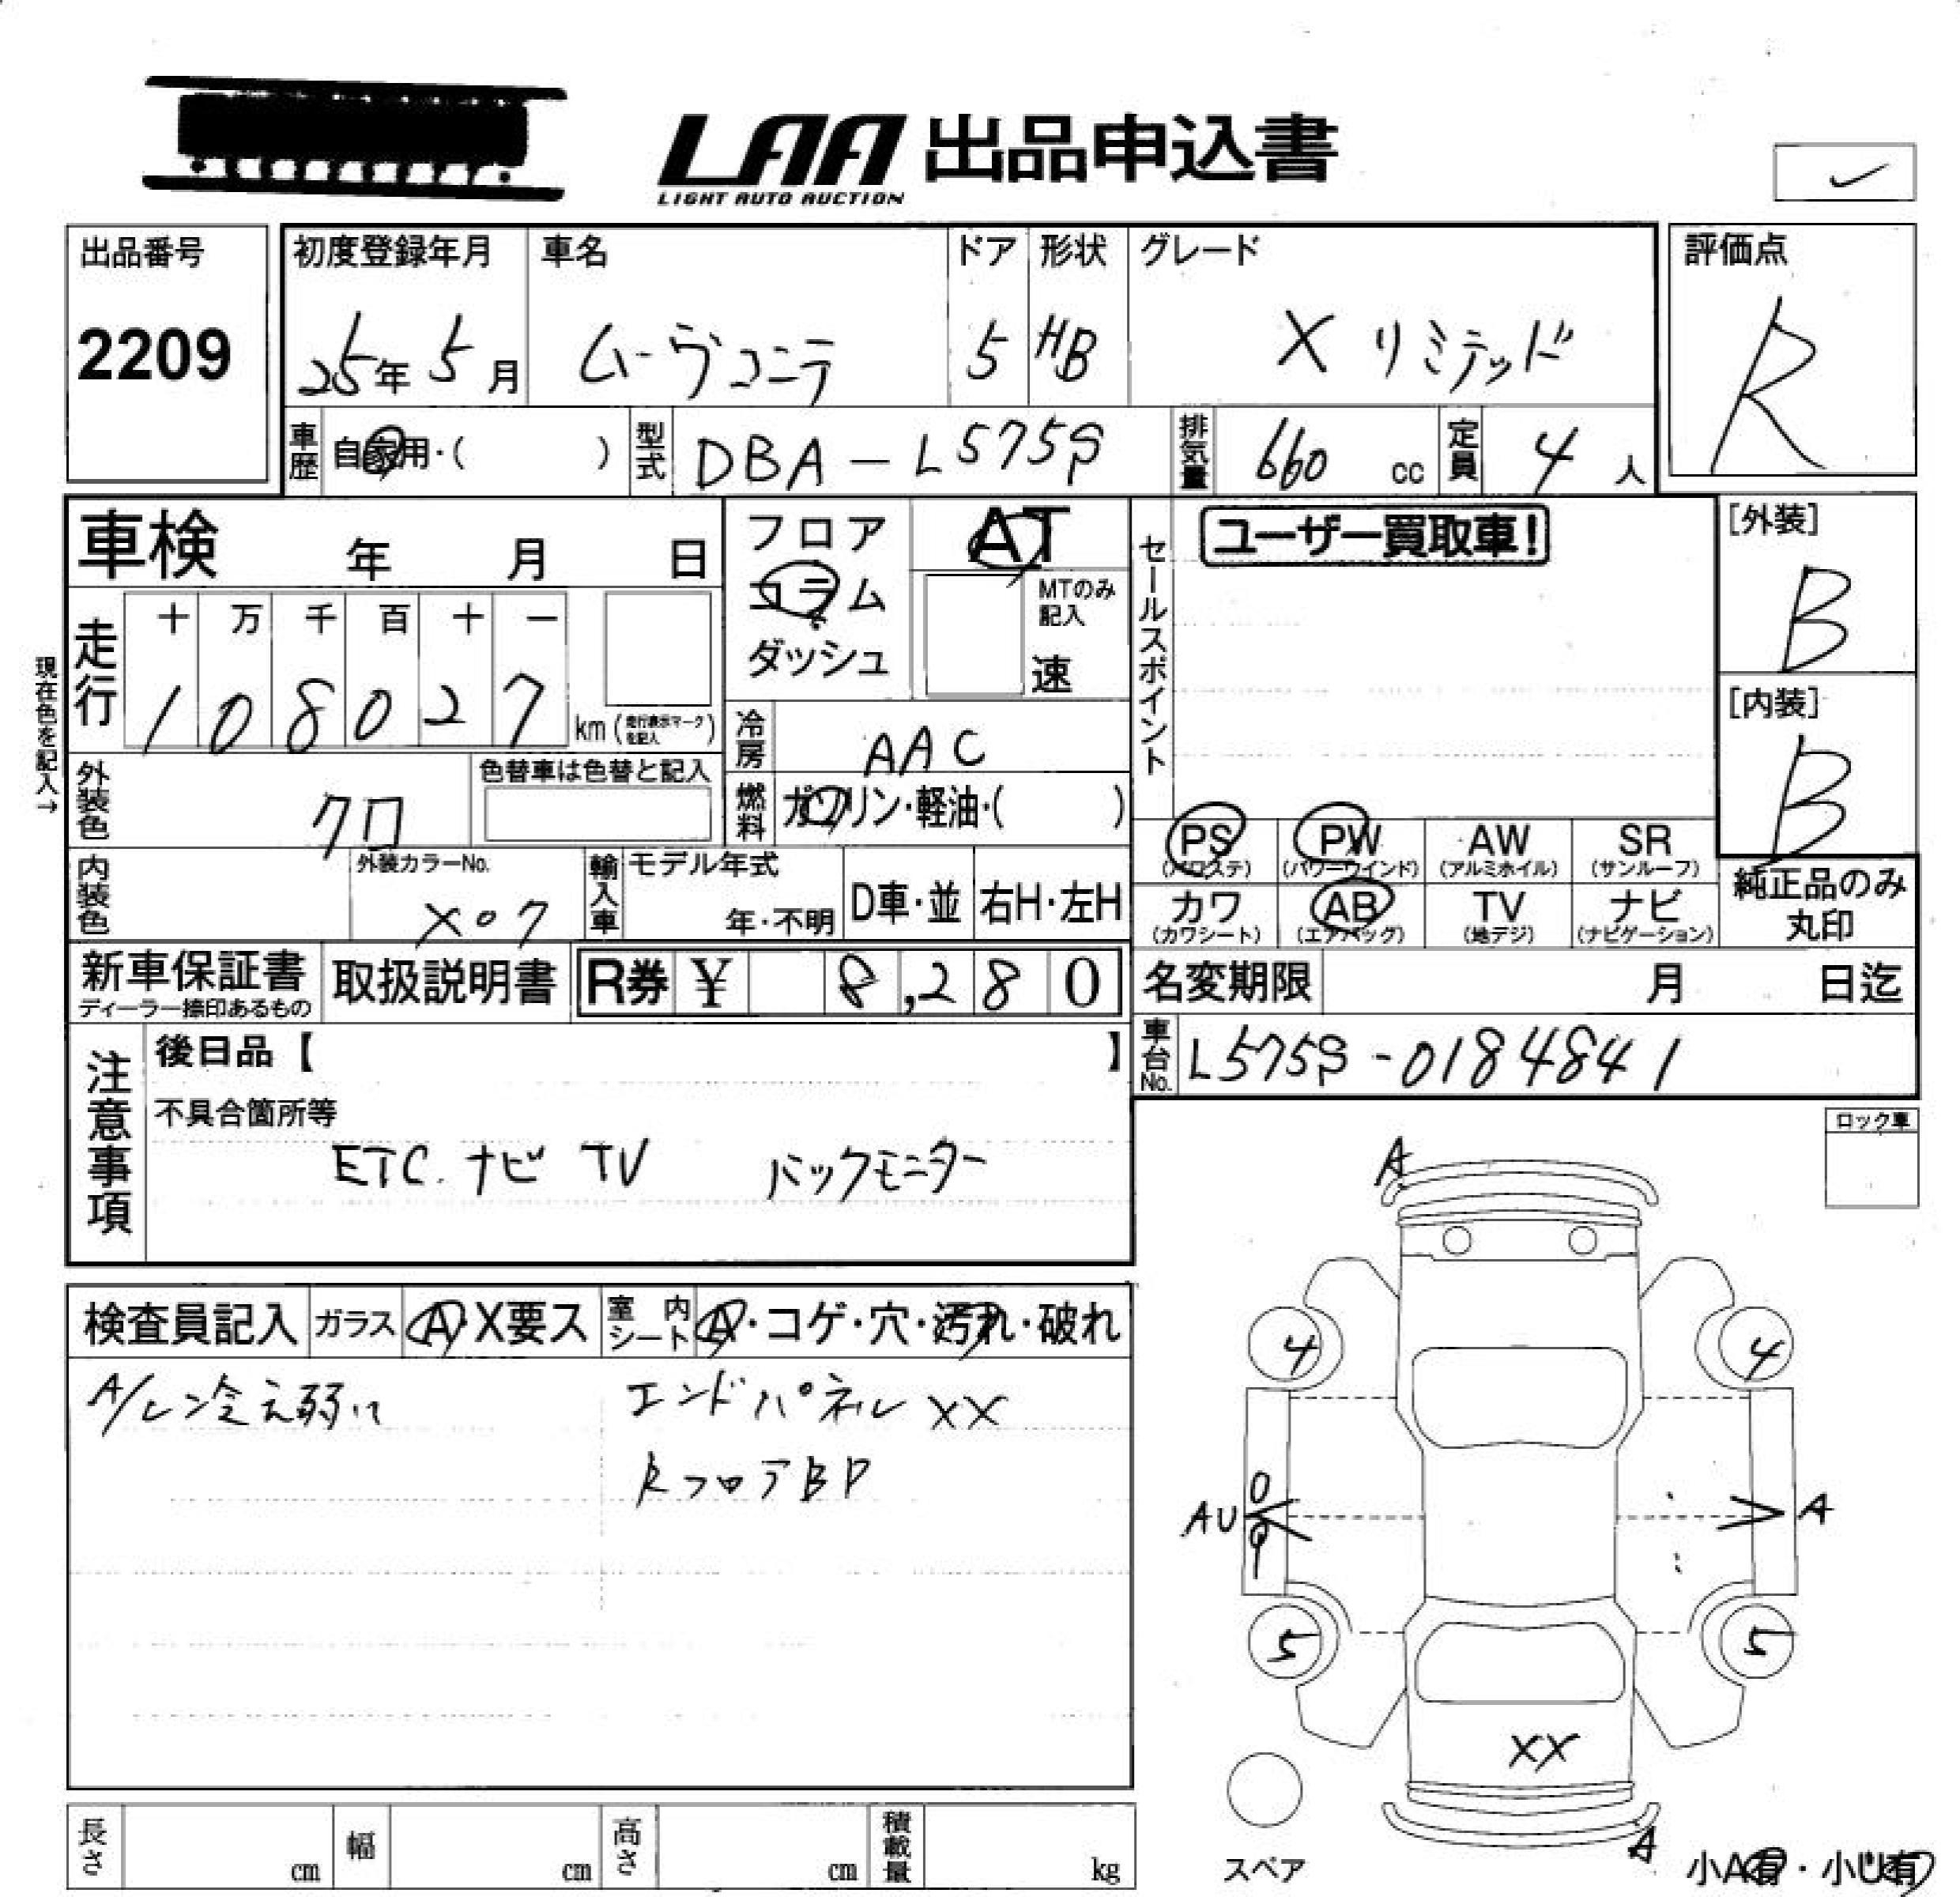 LAA 出品申込書
LIGHT AUTO AUCTION
出品番号
2209
初度登録年月
25年5月
車名
ムーヴコンテ
ドア
5
形状
HB
グレード
X リミテッド
評価点
R
車歴
自家用・( )
型式
DBA-L575S
排気量
660 cc
定員
4 人
車検 年 月 日
フロア
コラム
ダッシュ
AT
MTのみ
記入
速
セールスポイント
ユーザー買取車!
[外装]
B
[内装]
B
現在色を記入→
走行
十 万 千 百 十 一
1 0 8 0 2 7
km(走行表示マークを記入)
冷房
AAC
外装色
クロ
色替車は色替と記入
燃料
ガソリン・軽油・( )
PS
(パワステ)
PW
(パワーウインド)
AW
(アルミホイル)
SR
(サンルーフ)
カワ
(カワシート)
AB
(エアバッグ)
TV
(地デジ)
ナビ
(ナビゲーション)
純正品のみ
丸印
内装色
外装カラーNo.
X07
輸入車
モデル年式
年・不明
D車・並
右H・左H
新車保証書
ディーラー捺印あるもの
取扱説明書
R券 ¥ 8,280
名変期限 月 日迄
車台No.
L575S-0184841
注意事項
後日品【 】
不具合箇所等
ETC. ナビ TV バックモニター
ロック車
検査員記入
ガラス
A・X要ス
室内シート
A・コゲ・穴・汚れ・破れ
エンドパネル XX
RフロアBP
A
4
4
AU
A
5
5
XX
A
スペア
小A有・小U有
長さ cm
幅 cm
高さ cm
積載量 kg